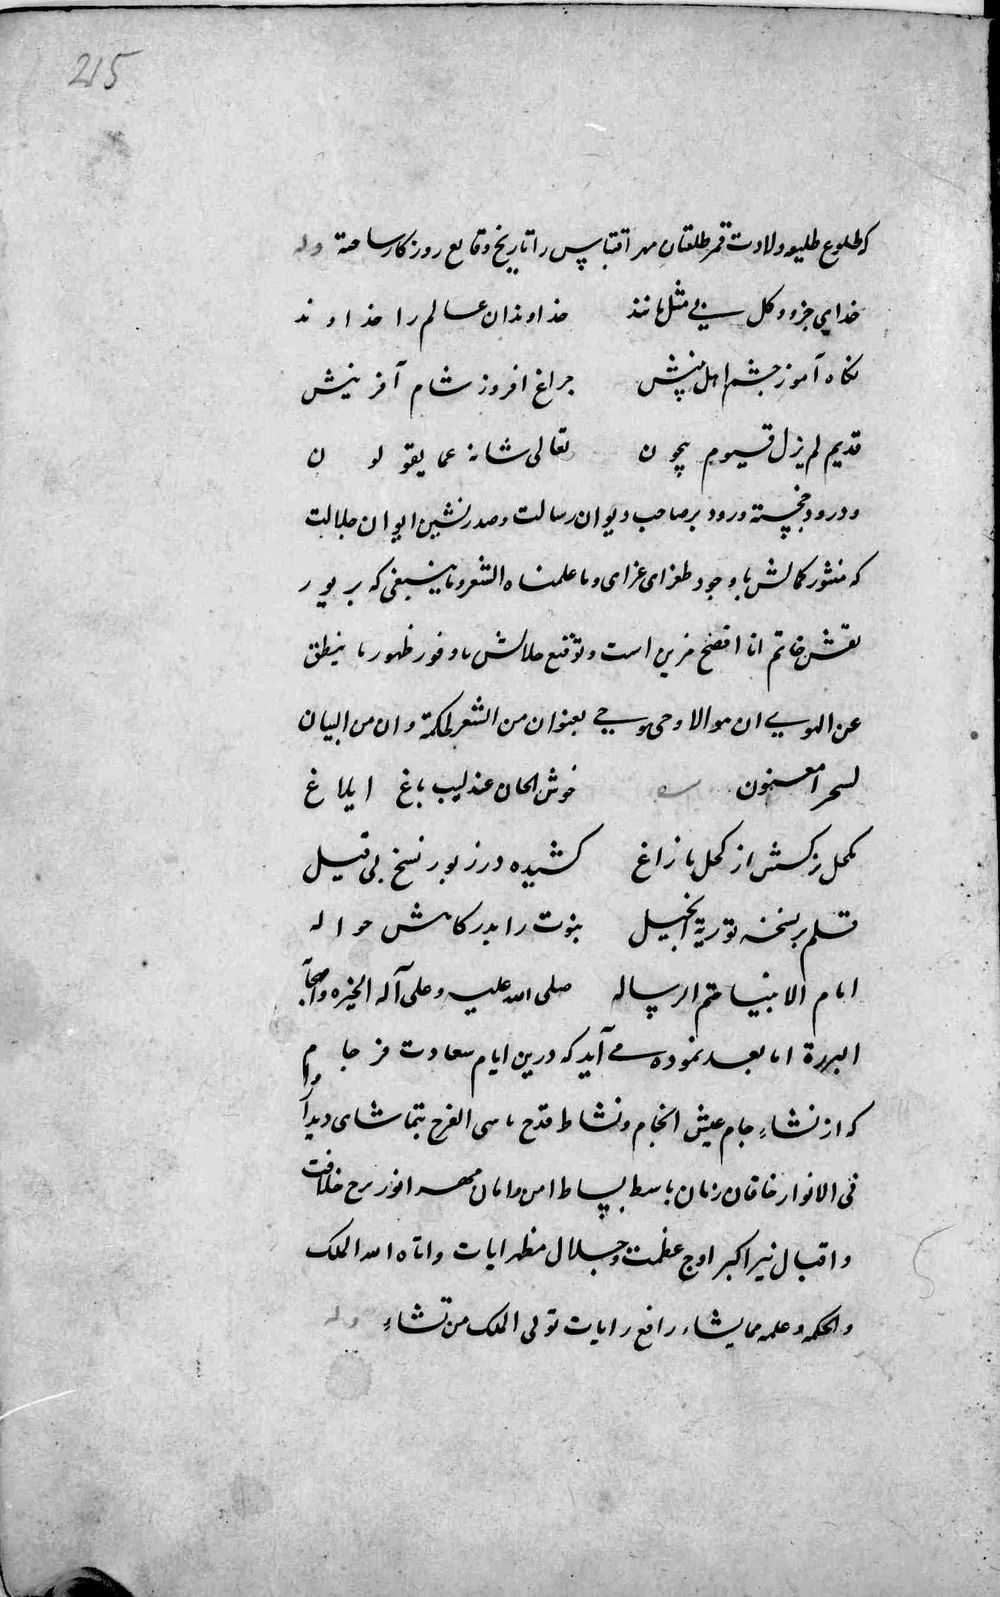 215
که طلوع طلیعه ولادت قمر طلعتان مهر اقتباس را تاریخ وقایع روزکار ساخته وله
خدای جزو و کل بی مثل مانند خداوندان عالم را خداوند
نکاه آموز چشم اهل بینش چراغ افروز شام آفرینش
قدیم لم یزل قیوم بیچون تعالی شانه عما یقولون
و درود خجسته ورود بر صاحب دیوان رسالت و صدرنشین ایوان جلالت
که منثور کمالش با وجود طغرای غرای و ما علمناه الشعر و ما ینبغی که بر یور
نقش خاتم انا افصح مزین است و توقیع جلالش با وفور ظهور ما ینطق
عن الهوی ان هو الا وحی یوحی بعنوان من الشعر لحکمة و ان من البیان
لسحرا معنون خوش الحان عندلیب باغ ابلاغ
مکحل نرکسش از کحل ما زاغ کشیده در زبور نسخ بی قیل
قلم بر نسخه توریة انجیل نبوت را بدرکاهش حواله
امام الانبیا ختم الرساله صلی الله علیه و علی آله الخیره و اصحابه
البررة اما بعد نموده می آید که درین ایام سعادت فرجام
که از نشاءِ جام عیش انجام و نشاط قدح ماسی الفرح بتماشای دیدار وام
فی الانوار خاقان زمان باسط بساط امن و امان مهر انور برج خلافت
و اقبال نیر اکبر اوج عظمت و جلال مظهر ایات و اتاه الله الملک
و الحکمه و علمه مما یشاء رافع رایات توتی الملک من تشاءِ وله